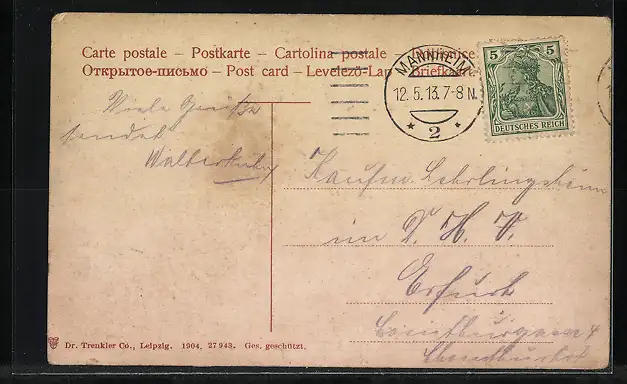 Carte postale – Postkarte – Cartolina postale –
Открытое-письмо – Post card – Levelező-Lap – Briefkaart
MANNHEIM
12.5.13. 7-8 N.
* 2 *
5 5
DEUTSCHES REICH
Viele Grüße
sendet
Walter
Kaufm. Lehrlingsheim
im D. H. V.
Erfurt
Dr. Trenkler Co., Leipzig. 1904. 27943. Ges. geschützt.